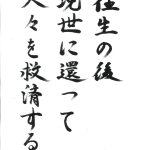 往生の後
現世に還って
人々を救済する